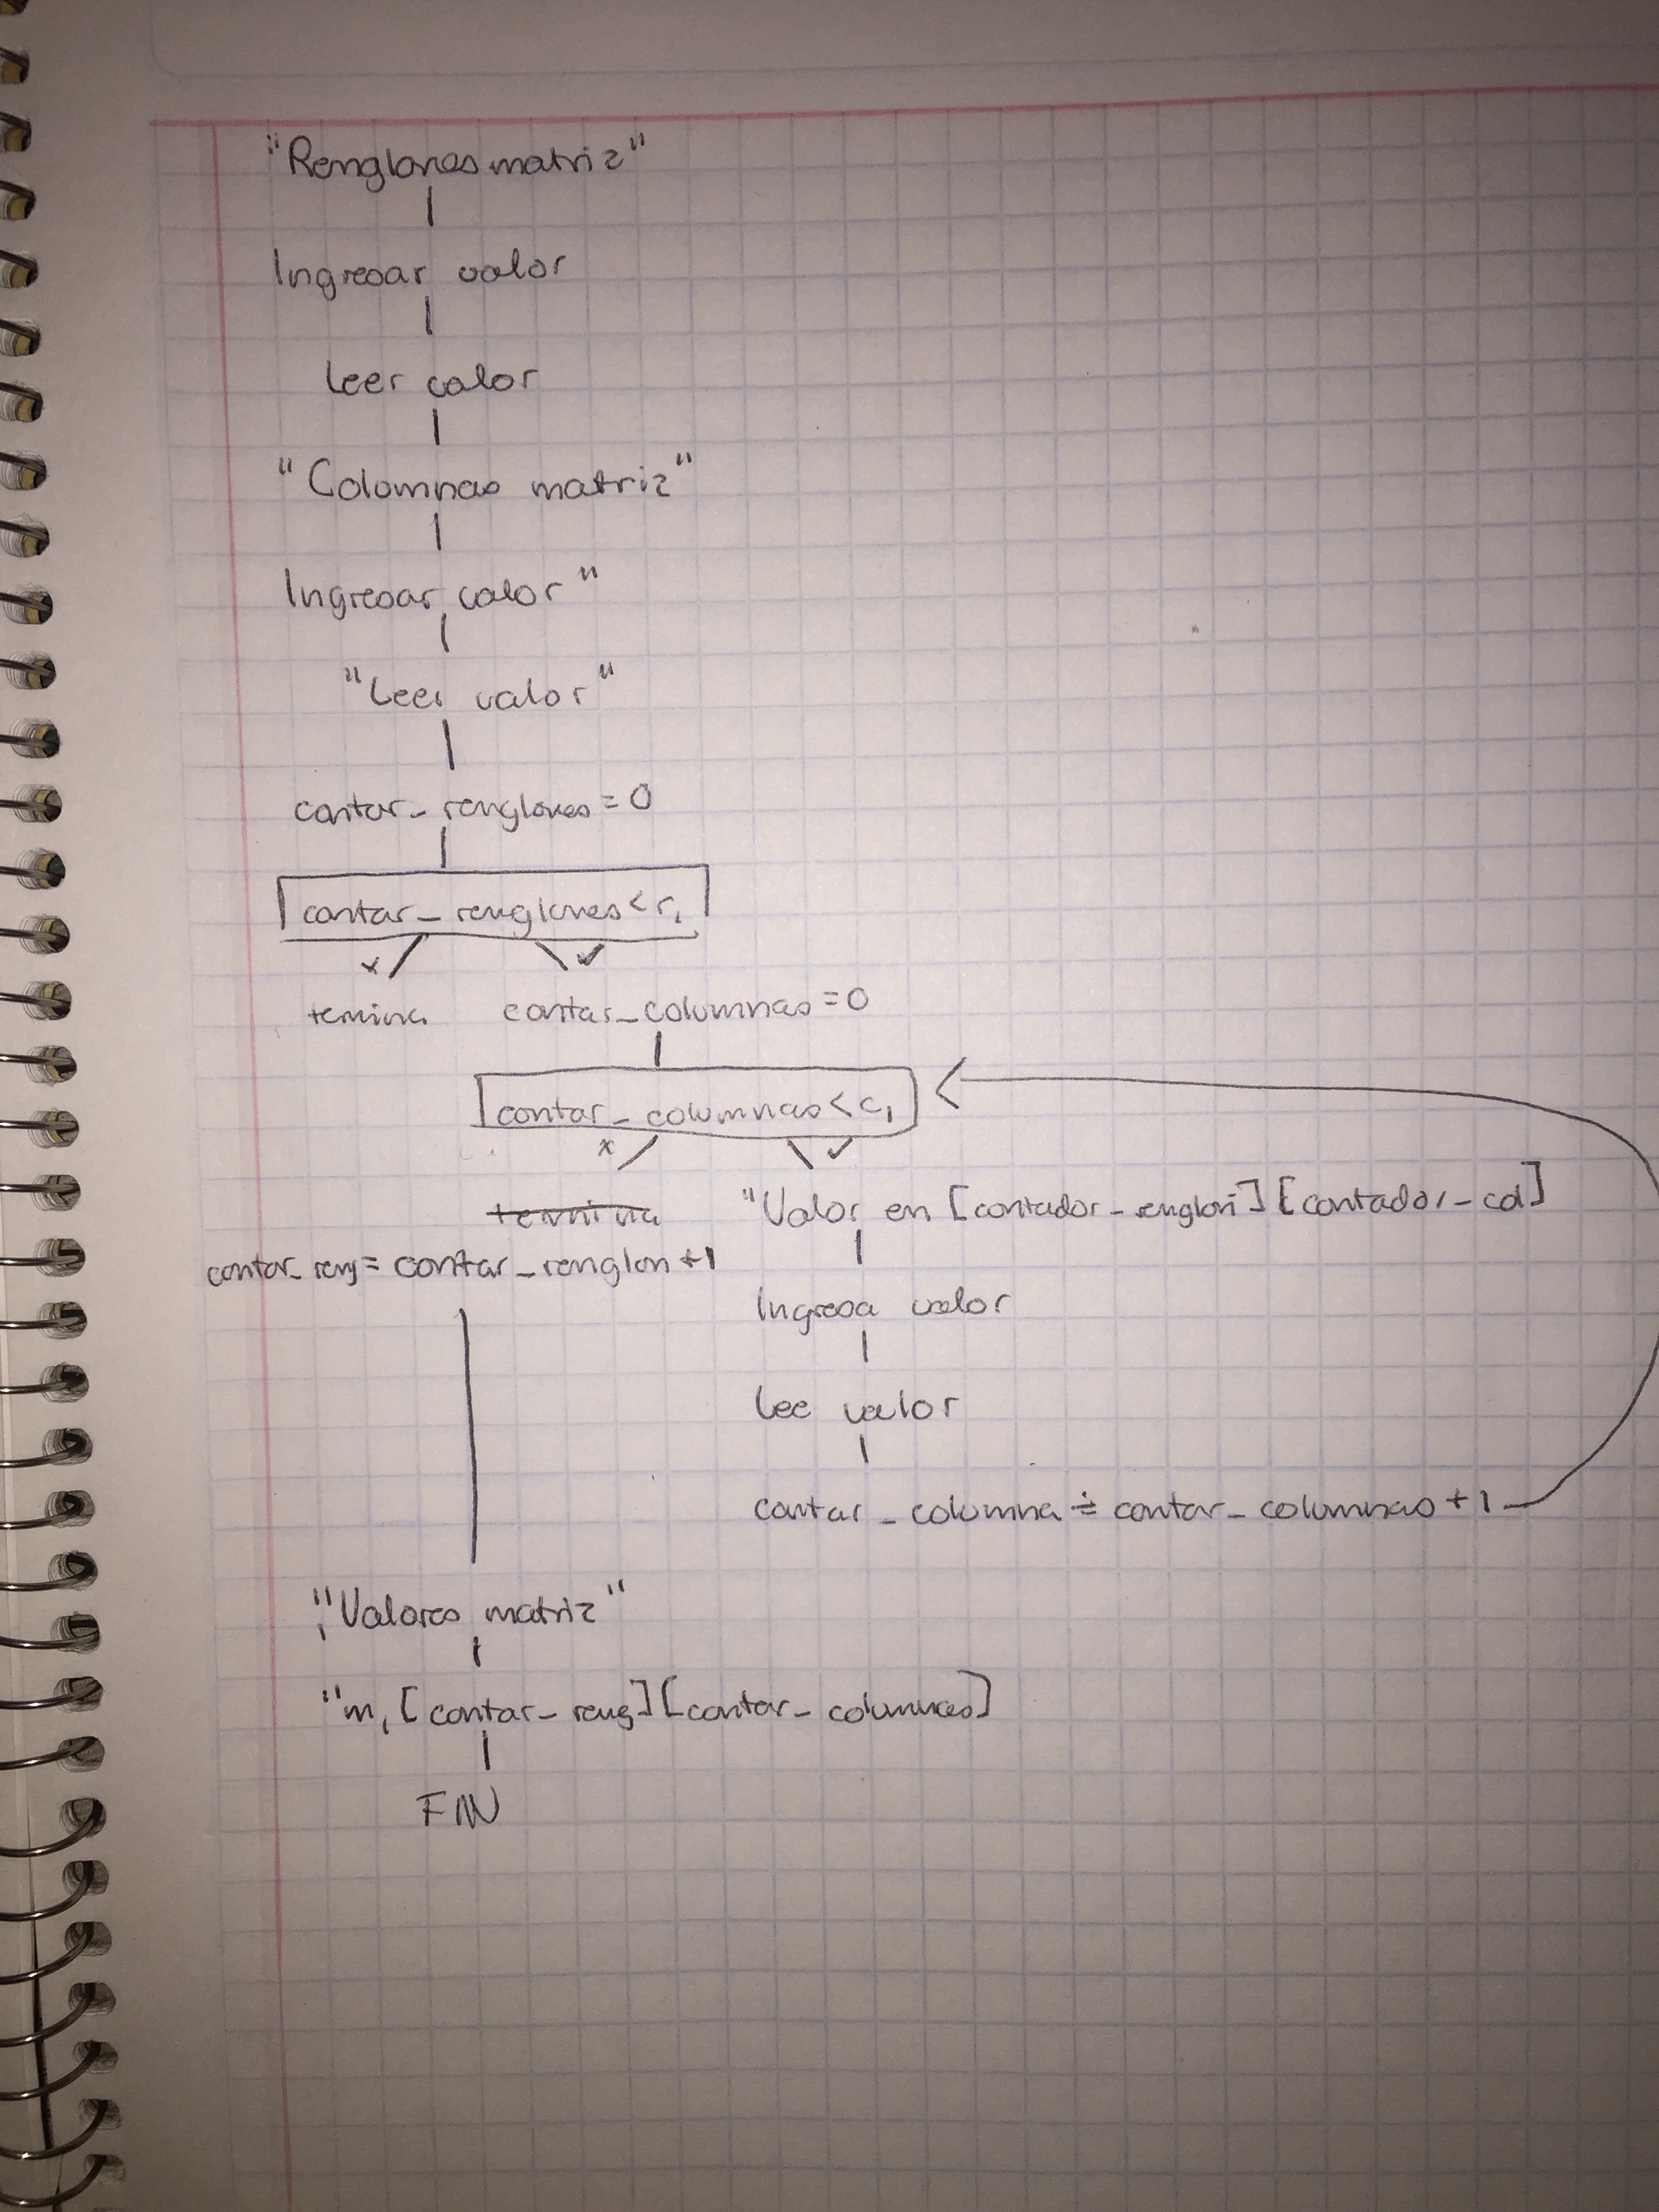 "Renglones matriz"
Ingresar valor
Leer valor
"Columnas matriz"
Ingresar valor"
"Leer valor"
contar_renglones=0
contar_renglones<r1
x ✓
temina contar_columnas=0
contar_columnas<c1
x ✓
termina "Valor en [contador_renglon][contador_col]
contar_reng= contar_renglon+1
Ingresa valor
Lee valor
contar_columna = contar_columnas+1
"Valores matriz"
"m1[contar_reng][contar_columnas]
FIN